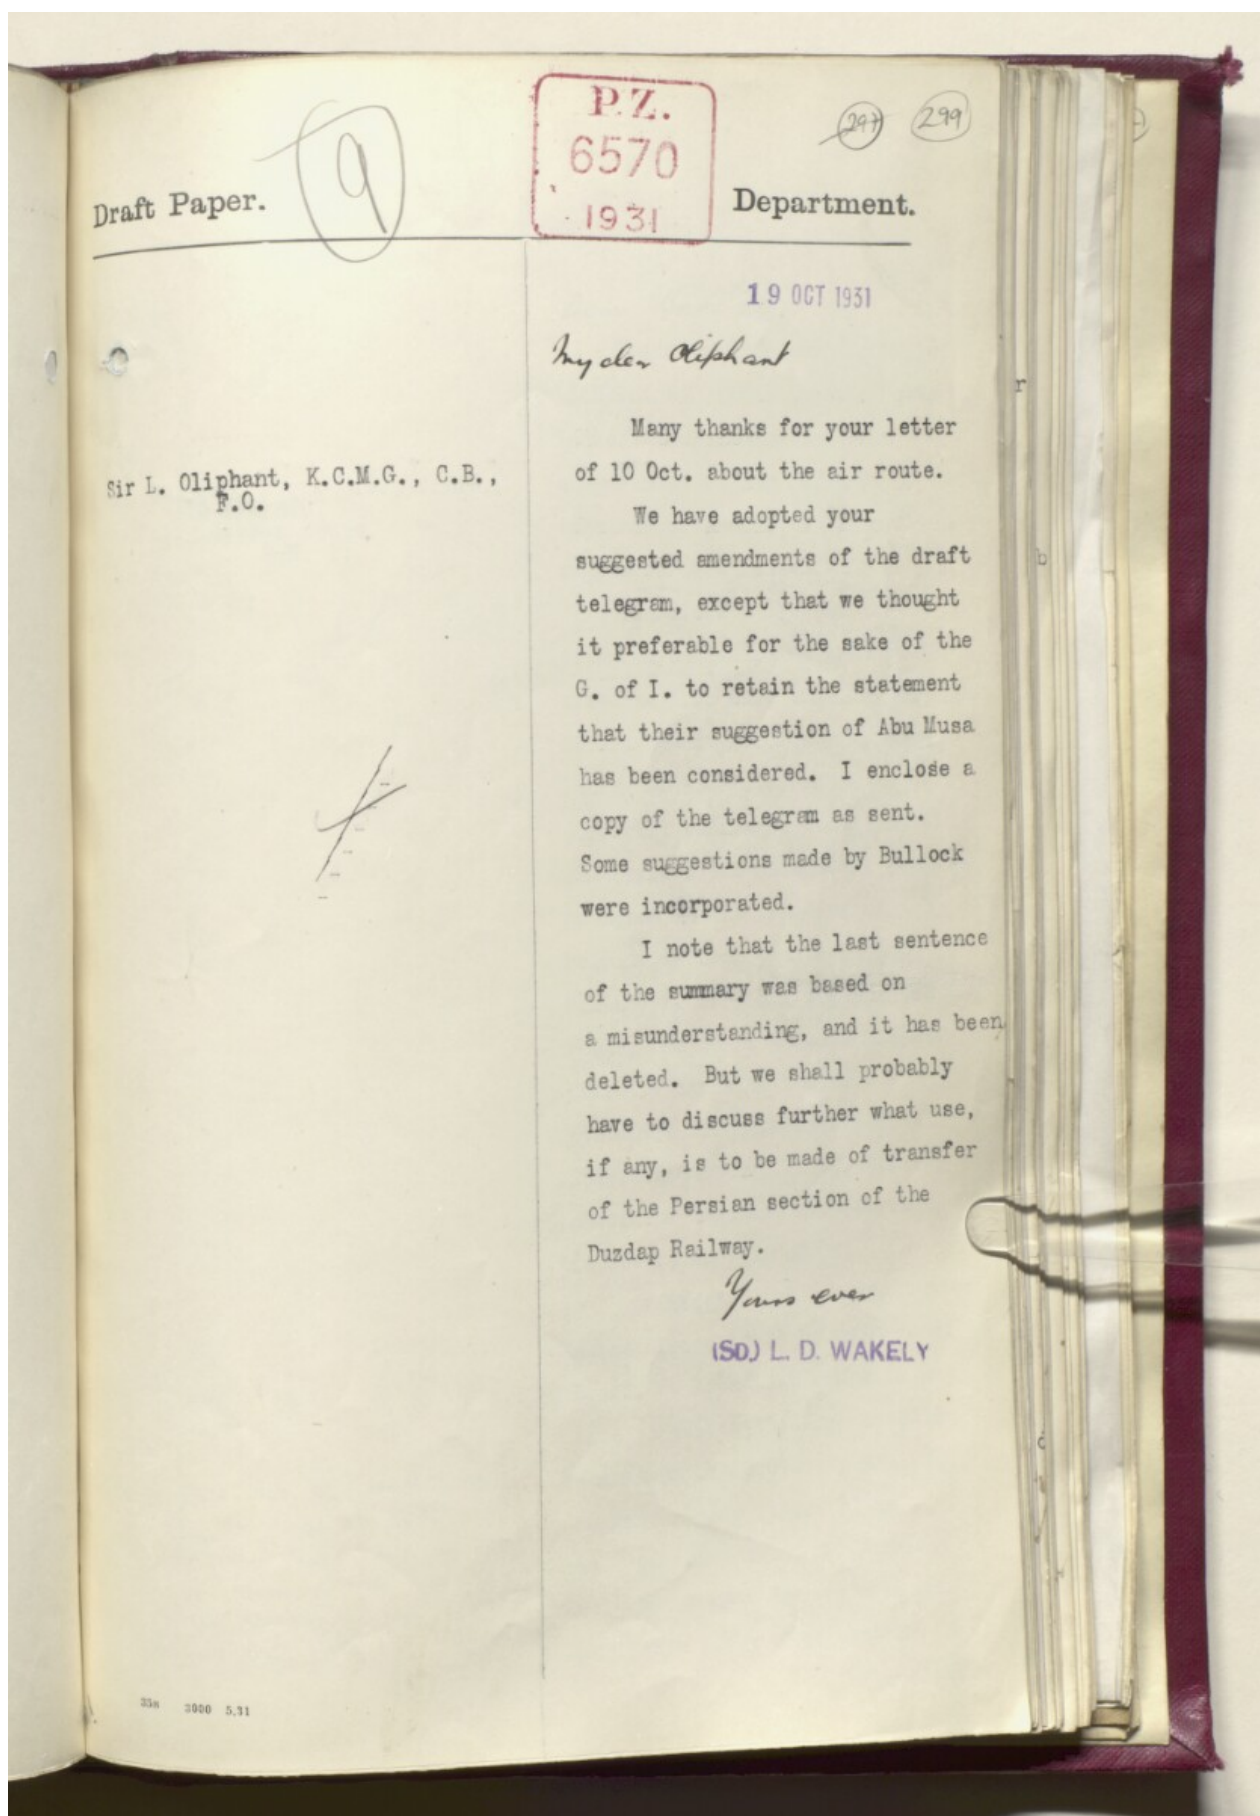 P.Z.
6570
1931
297
299
9
Draft Paper.
Department.
19 OCT 1931
My dear Oliphant
Sir L. Oliphant, K.C.M.G., C.B.,
F.O.
Many thanks for your letter
of 10 Oct. about the air route.
We have adopted your
suggested amendments of the draft
telegram, except that we thought
it preferable for the sake of the
G. of I. to retain the statement
that their suggestion of Abu Musa
has been considered. I enclose a
copy of the telegram as sent.
Some suggestions made by Bullock
were incorporated.
I note that the last sentence
of the summary was based on
a misunderstanding, and it has been
deleted. But we shall probably
have to discuss further what use,
if any, is to be made of transfer
of the Persian section of the
Duzdap Railway.
Yours ever
(SD.) L. D. WAKELY
3000 5.31